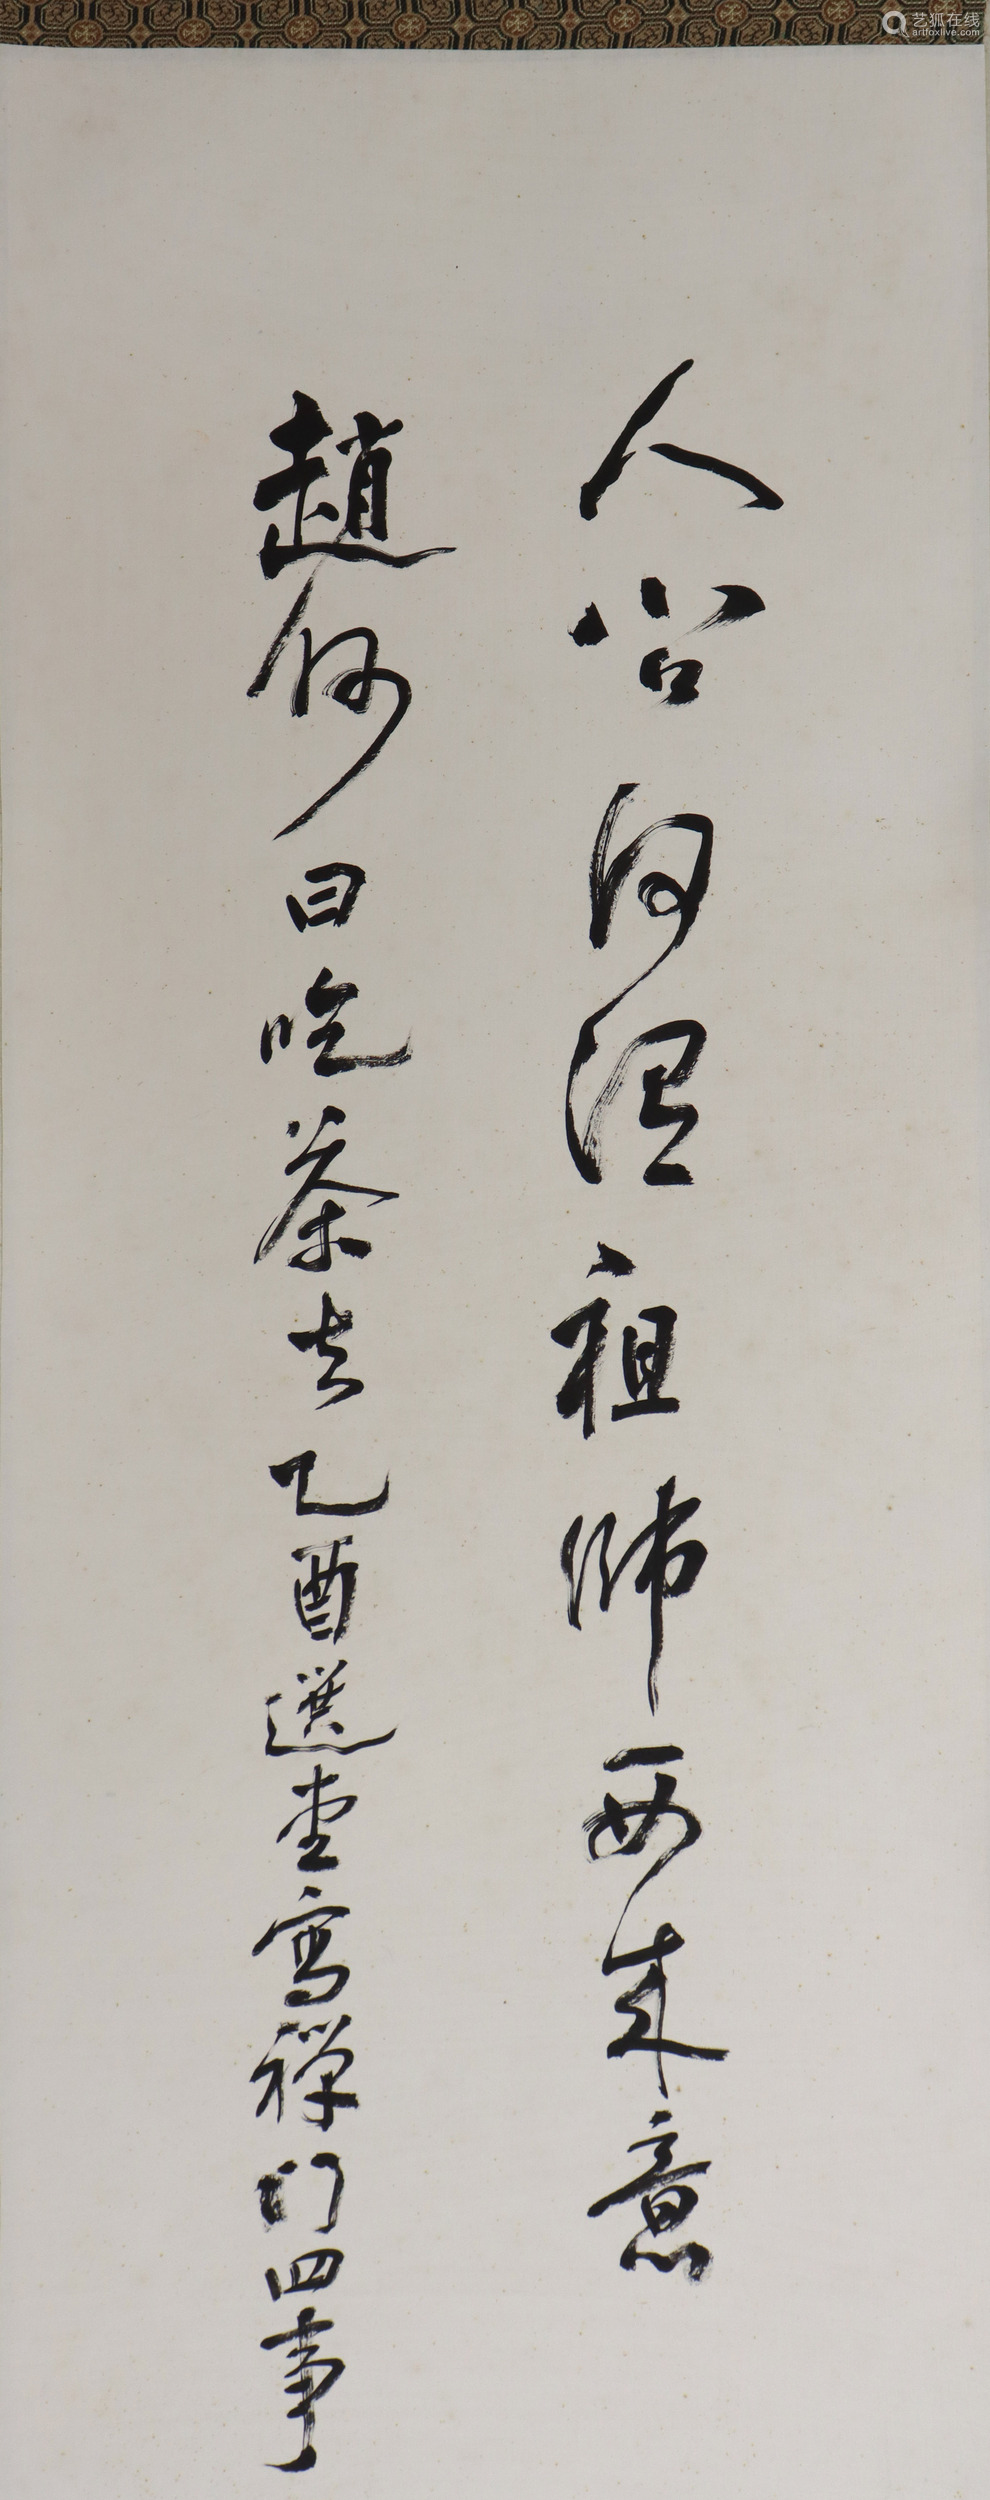 人何祖師西來意
趙州曰吃茶去乙酉選堂寫禪門四事
艺狐在线
artfoxlive.com